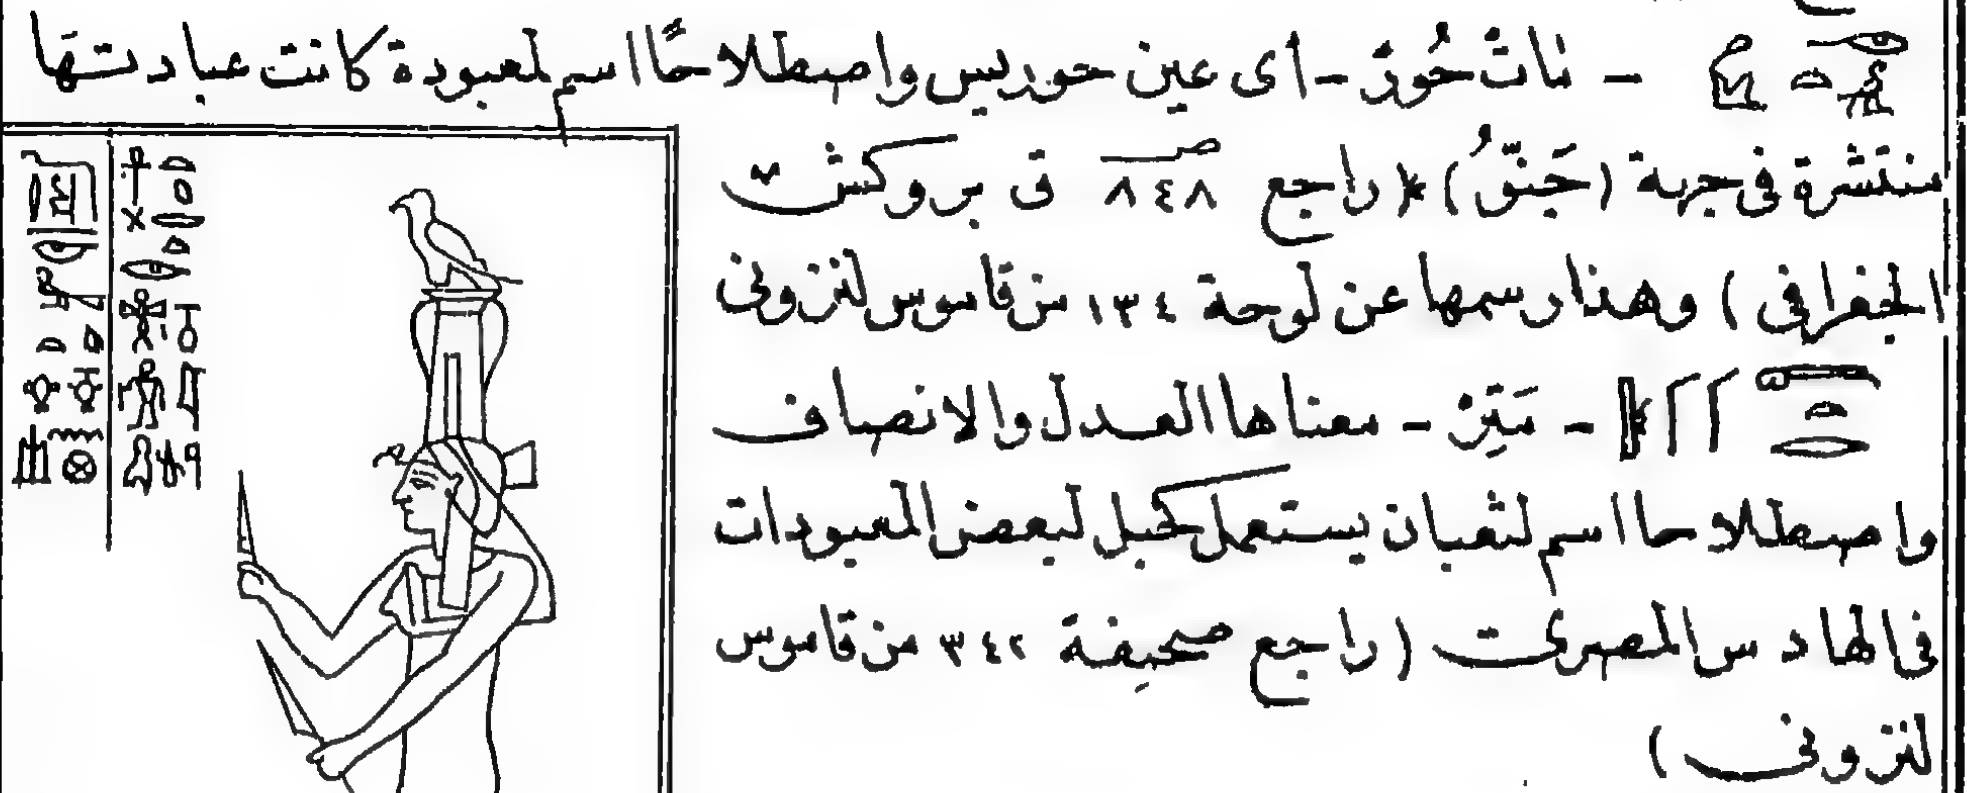 - مَاتْ حُورْ - أى عين حوريس واصطلاحًا اسم لمعبودة كانت عبادتها
منتشرة فى جهة (حَبْنُّ) (راجع صـ ٨٤٨ ق بروكش
الجغرافى) وهذا رسمها عن لوحة ١٣٤ من قاموس لنزونى
- مَتِرْ - معناها العدل والانصاف
واصطلاحا اسم لثعبان يستعمل كحبل لبعض المعبودات
فى الهادس المصرى (راجع صحيفة ٣٤٢ من قاموس
لنزونى)